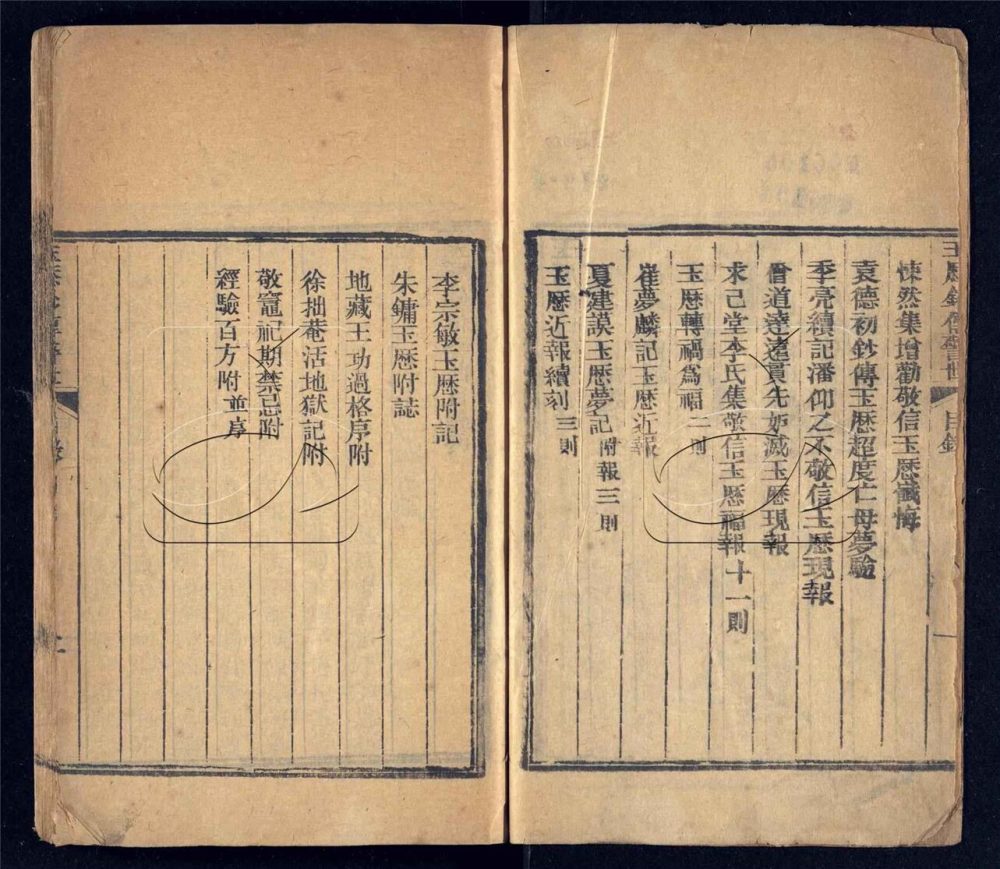 玉歷鈔傳警世 目錄
悚然集增勸敬信玉歷懺悔
袁德初鈔傳玉歷超度亡母夢驗
季亮續記潘仰之不敬信玉歷現報
僧道達遠員先妒滅玉歷現報
求己堂李氏集敬信玉歷福報十一則
玉歷轉禍為福二則
崔夢麟記玉歷近報
夏建謨玉歷夢記附報三則
玉歷近報續刻三則
李宗敏玉歷附記
朱鏞玉歷附誌
地藏王功過格序附
徐拙菴活地獄記附
敬竈祀期禁忌附
經驗百方附並序